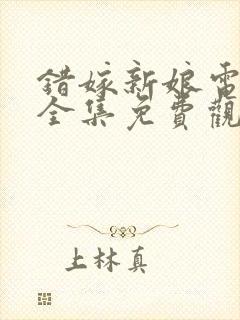 錯嫁新娘電
全集免費觀
上林真